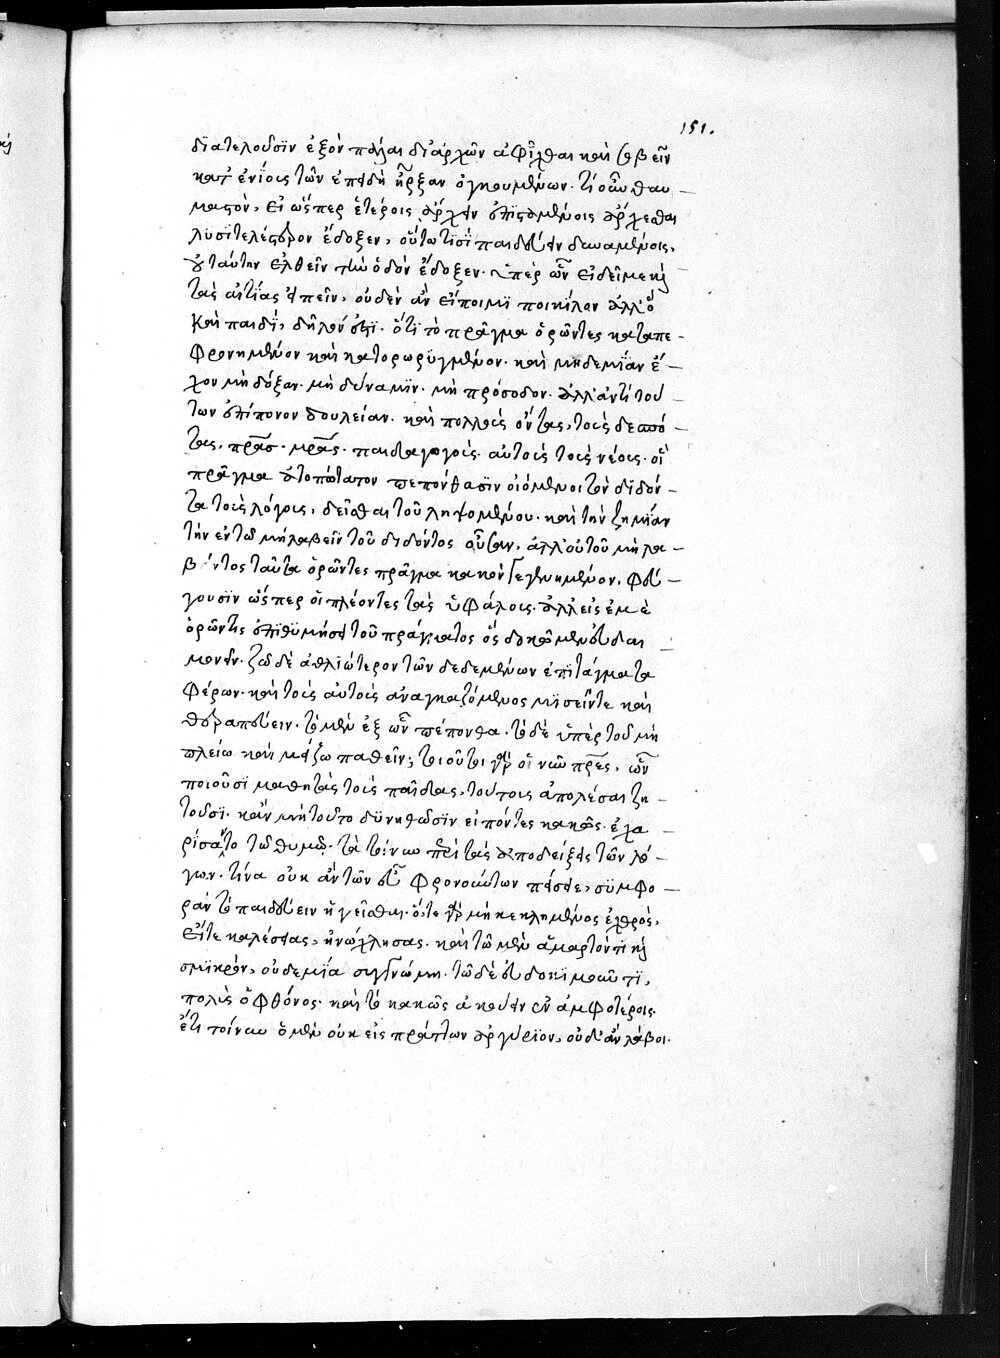 151.
διατελοῦσϊν ἐξὸν πάλαι δι' ἀρχῶν ἀφῖχθαι καὶ σοβεῖν
κατ' ἐνίοις τῶν ἐπειδὴ ἦρξαν ὀγκουμένων. τί οὖν θαυ -
μαστὸν, εἰ ὥσπερ ἑτέροις ἄρχειν ἐπισταμένοις ἄρχεσθαι
λυσιτελέστερον ἔδοξεν, οὕτω τισὶ παιδεύειν δυναμένοις,
ταύτην ἐλθεῖν τὴν ὁδὸν ἔδοξεν. ὑπὲρ ὧν εἰ δεῖ με καὶ
τὰς αἰτίας εἰπεῖν, οὐδὲν ἂν εἴποιμϊ ποικίλον ἀλλ' ὃ
καὶ παιδὶ, δῆλον ἐστϊ. ὅτι τὸ πρᾶγμα ὁρῶντες καταπε -
φρονημένον καὶ κατορωρυγμένον. καὶ μηδεμίαν ἔ -
χον μὴ δόξαν. μὴ δύναμϊν. μὴ πρόσοδον. ἀλλ' ἀντὶ τού -
των ἐπίπονον δουλείαν. καὶ πολλοὺς ὄντας, τοὺς δεσπό -
τας, πρας. μρας. παιδαγωγοὺς. αὐτοὺς τοὺς νέους. οἳ
πρᾶγμα ἀτοπώτατον πεπόνθασϊν οἰόμενοι τὸν διδόν -
τα τοὺς λόγους, δεῖσθαι τοῦ ληψομένου. καὶ τὴν ζημίαν
τὴν ἐν τῶ μὴ λαβεῖν τοῦ διδόντος οὖσαν, ἀλλ' οὐ τοῦ μὴ λα -
βόντος ταῦτα ὁρῶντες πρᾶγμα κακὸν γεγενημένον, φεύ -
γουσϊν ὥσπερ οἱ πλέοντες τὰς ὑφάλους. ἀλλ' εἰς ἐμὲ
ὁρῶντες ἐπιθυμήσει τοῦ πράγματος ὃς δοκῶ μὲν εὐδαι
μονεῖν. ζῶ δὲ ἀθλιώτερον τῶν δεδεμένων ἐπϊτάγματα
φέρων. καὶ τοὺς αὐτοὺς ἀναγκαζόμενος μϊσεῖν τε καὶ
θεραπεύειν. τὸ μὲν ἐξ ὧν πέπονθα. τὸ δὲ ὑπὲρ τοῦ μὴ
πλείω καὶ μείζω παθεῖν; τοιοῦτοι γὰρ οἱ νῦν πρες, ὧν
ποιοῦσϊ μαθητὰς τοὺς παῖδας, τούτους ἀπολέσαι ζη -
τοῦσϊ. κἂν μὴ τοῦτο δυνηθῶσϊν εἰπόντες κακῶς. ἐχα -
ρίσαντο τῶ θυμῶ. τὰ τοίνυν περὶ τὰς ἀποδείξεις τῶν λό -
γων. τίνα οὐκ ἂν τῶν εὖ φρονούντων πείσειε, συμφο -
ρὰν τὸ παιδεύειν ἡγεῖσθαι. ὅτε γὰρ μὴ κεκλημένος ἐχθρὸς,
εἴτε καλέσειας, ἠνώχλησας. καὶ τῶ μὲν ἁμαρτόντϊ καὶ
σμϊκρὸν, οὐδεμία συγγνώμη. τῶ δὲ εὐδοκιμοῦντϊ,
πολὺς ὁ φθόνος. καὶ τὸ κακῶς ἀκούειν ἐν ἀμφοτέροις.
ἔτι τοίνυν ὁ μὲν οὐκ εἰσπράττων ἀργύρϊον, οὐδ' ἂν λάβοι.